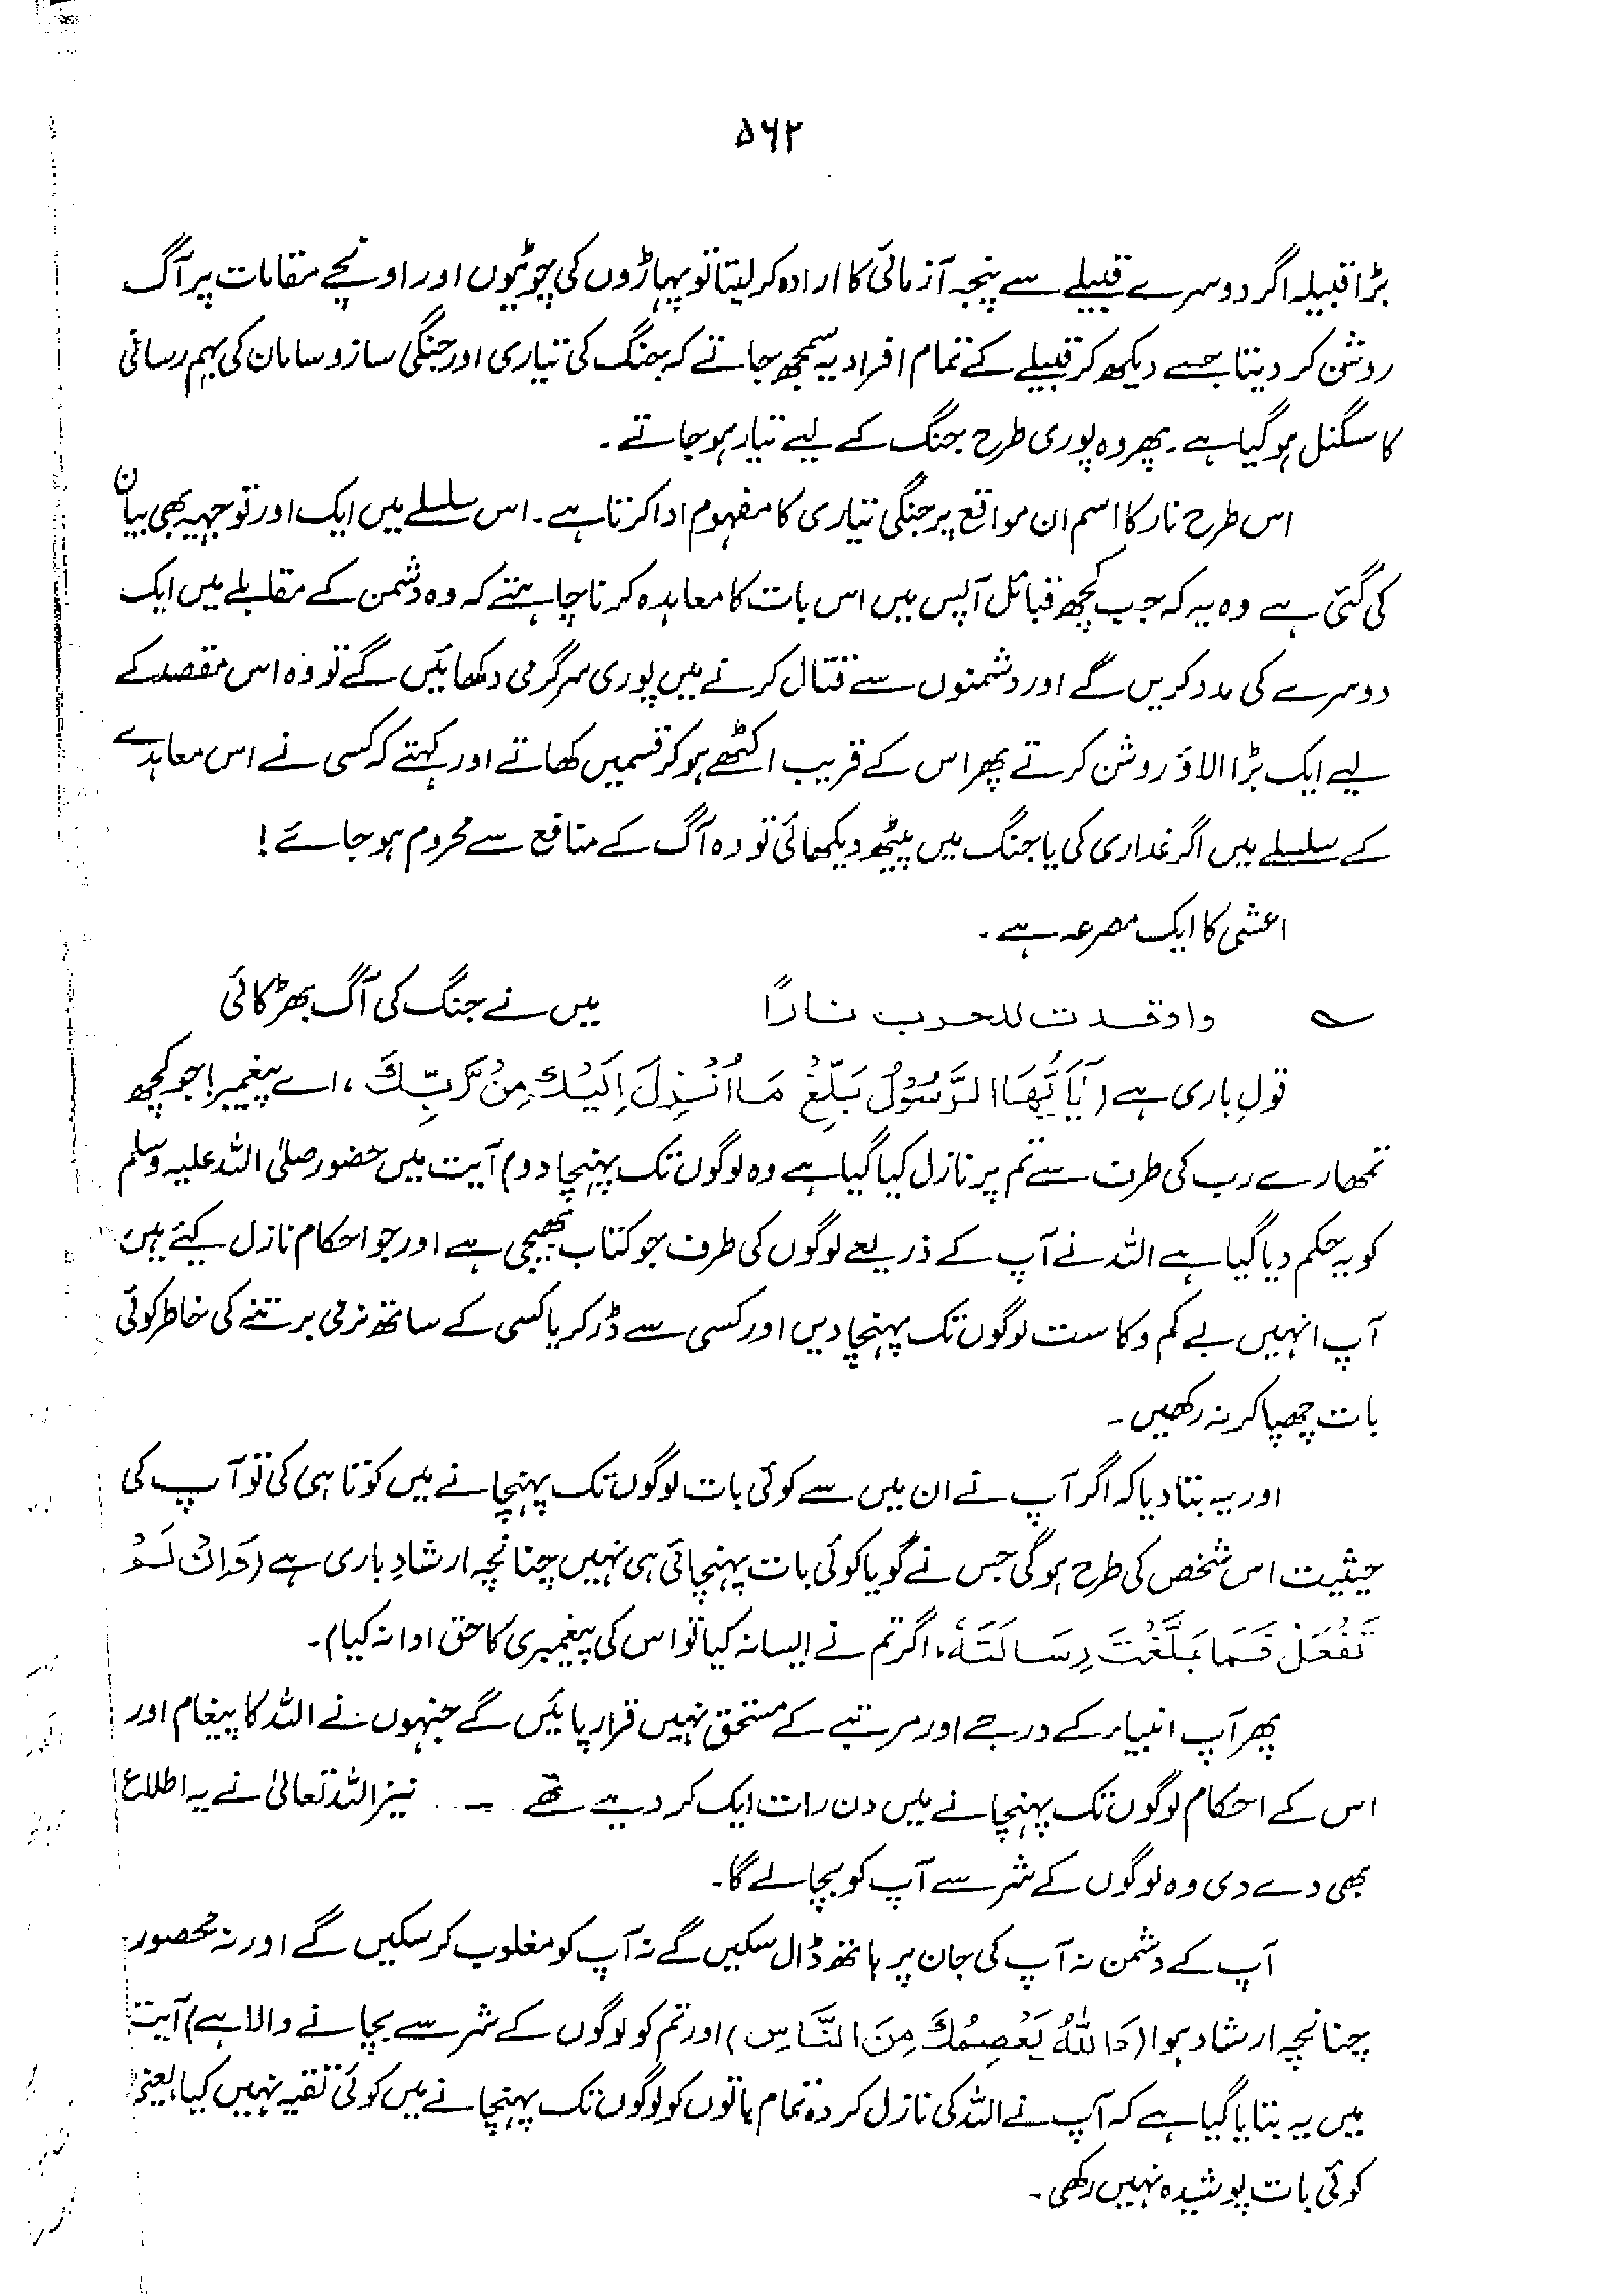 ۵۶۲
بڑا قبیلہ اگر دوسرے قبیلے سے پنجہ آزمائی کا ارادہ کر لیتا تو پہاڑوں کی چوٹیوں اور اونچے مقامات پر آگ
روشن کر دیتا جسے دیکھ کر قبیلے کے تمام افراد یہ سمجھ جاتے کہ جنگ کی تیاری اور جنگی ساز و سامان کی بہم رسانی
کا سگنل ہو گیا ہے۔ پھر وہ پوری طرح جنگ کے لیے تیار ہو جاتے۔
اس طرح نار کا اسم ان مواقع پر جنگی تیاری کا مفہوم ادا کرتا ہے۔ اس سلسلے میں ایک اور توجیہہ بھی بیان
کی گئی ہے وہ یہ کہ جب کچھ قبائل آپس میں اس بات کا معاہدہ کرنا چاہتے کہ وہ دشمن کے مقابلے میں ایک
دوسرے کی مدد کریں گے اور دشمنوں سے قتال کرنے میں پوری سرگرمی دکھائیں گے تو وہ اس مقصد کے
لیے ایک بڑا الاؤ روشن کرتے پھر اس کے قریب اکٹھے ہو کر قسمیں کھاتے اور کہتے کہ کسی نے اس معاہدے
کے سلسلے میں اگر غداری کی یا جنگ میں پیٹھ دیکھائی تو وہ آگ کے منافع سے محروم ہو جائے !
اعشی کا ایک مصرعہ ہے۔
؎ واوقدت للحرب نارًا میں نے جنگ کی آگ بھڑکائی
قولِ باری ہے (يَآ اَيُّهَا الرَّسُوْلُ بَلِّغْ مَا اُنْزِلَ اِلَيْكَ مِنْ رَّبِّكَ ، اے پیغمبر! جو کچھ
تمھارے رب کی طرف سے تم پر نازل کیا گیا ہے وہ لوگوں تک پہنچا دو) آیت میں حضور صلی اللہ علیہ وسلم
کو یہ حکم دیا گیا ہے اللہ نے آپ کے ذریعے لوگوں کی طرف جو کتاب بھیجی ہے اور جو احکام نازل کیئے ہیں
آپ انہیں بے کم و کاست لوگوں تک پہنچا دیں اور کسی سے ڈر کر یا کسی کے ساتھ نرمی برتنے کی خاطر کوئی
بات چھپا کر نہ رکھیں۔
اور یہ بتا دیا کہ اگر آپ نے ان میں سے کوئی بات لوگوں تک پہنچانے میں کوتاہی کی تو آپ کی
حیثیت اس شخص کی طرح ہو گی جس نے گویا کوئی بات پہنچائی ہی نہیں چنانچہ ارشادِ باری ہے (وَاِنْ لَمْ
تَفْعَلْ فَمَا بَلَّغْتَ رِسَالَتَهٗ، اگر تم نے ایسا نہ کیا تو اس کی پیغمبری کا حق ادا نہ کیا)۔
پھر آپ انبیاء کے درجے اور مرتبے کے مستحق نہیں قرار پائیں گے جنہوں نے اللہ کا پیغام اور
اس کے احکام لوگوں تک پہنچانے میں دن رات ایک کر دیے تھے ۔ نیز اللہ تعالیٰ نے یہ اطلاع
بھی دے دی وہ لوگوں کے شر سے آپ کو بچا لے گا۔
آپ کے دشمن نہ آپ کی جان پر ہاتھ ڈال سکیں گے نہ آپ کو مغلوب کر سکیں گے اور نہ محصور
چنانچہ ارشاد ہوا (وَاللّٰهُ يَعْصِمُكَ مِنَ النَّاسِ) اور تم کو لوگوں کے شر سے بچانے والا ہے) آیت
میں یہ بتایا گیا ہے کہ آپ نے اللہ کی نازل کردہ تمام باتوں کو لوگوں تک پہنچانے میں کوئی تقیہ نہیں کیا یعنی
کوئی بات پوشیدہ نہیں رکھی۔